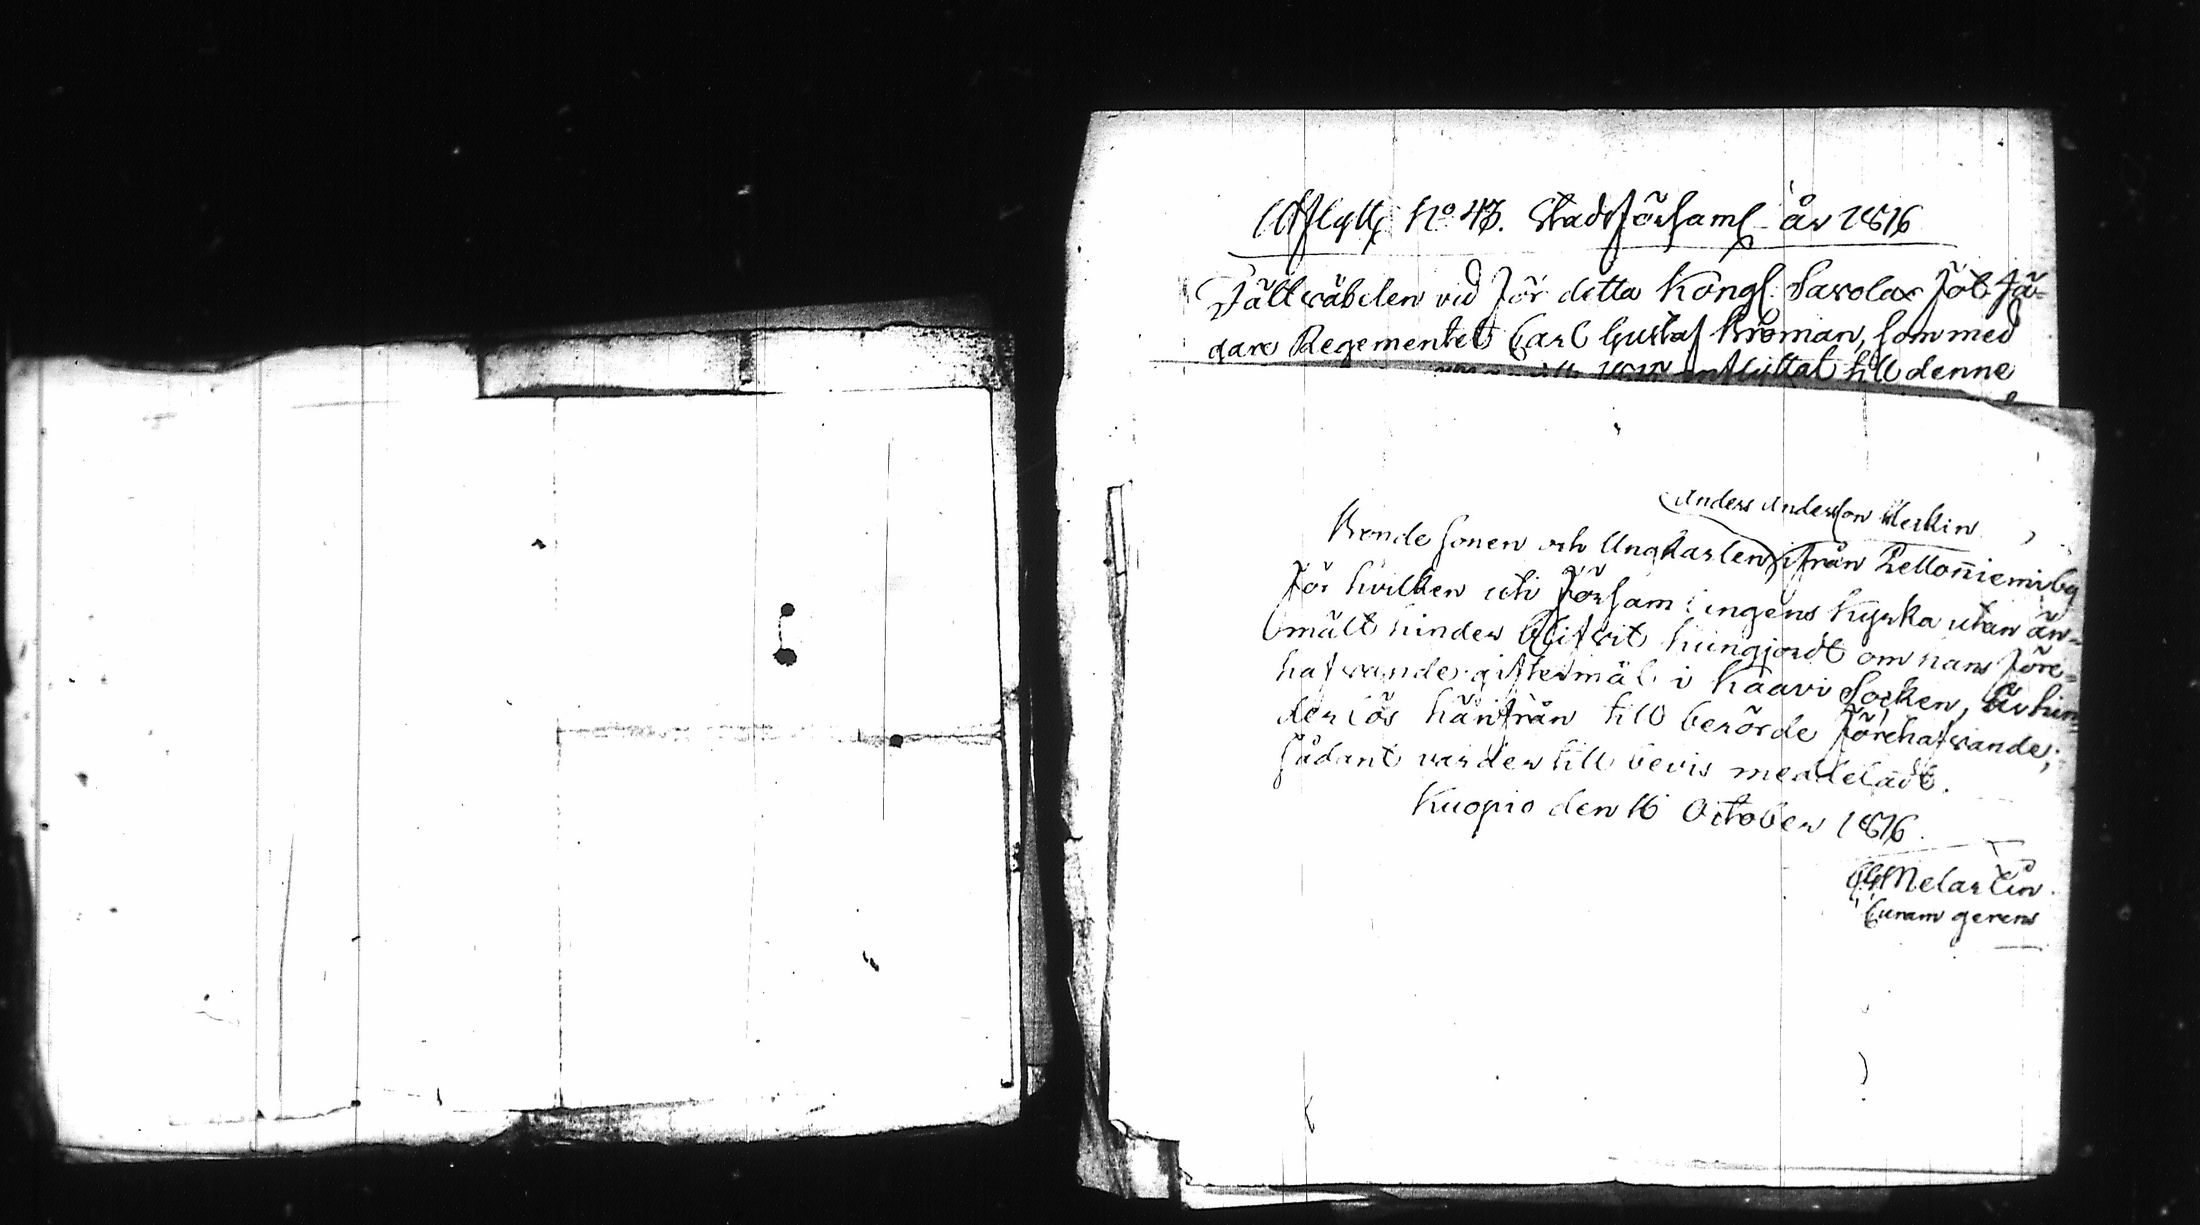 Utflyttn No 43. Stadsförsaml. år 1816
Fältväbelen vid för detta Kongl. Savolax Fot Jä-
gare Regementet Carl Gustaf Kroman, som med
utflyttat till denne
Anders Andersson Heskin
Bonde sonen och Ungkarlen ifrån Pettoniemi by
för hvilken uti Församlingens kyrka utan än-
mält hinder blifvit kungjordt om hans före-
hafvande giftermål i Kaavi Socken, är hin-
derlös härifrån till berörde förehafvande;
sådant varder till bevis meddeladt.
Kuopio den 16 October 1816.
Melartin
Curam gerens